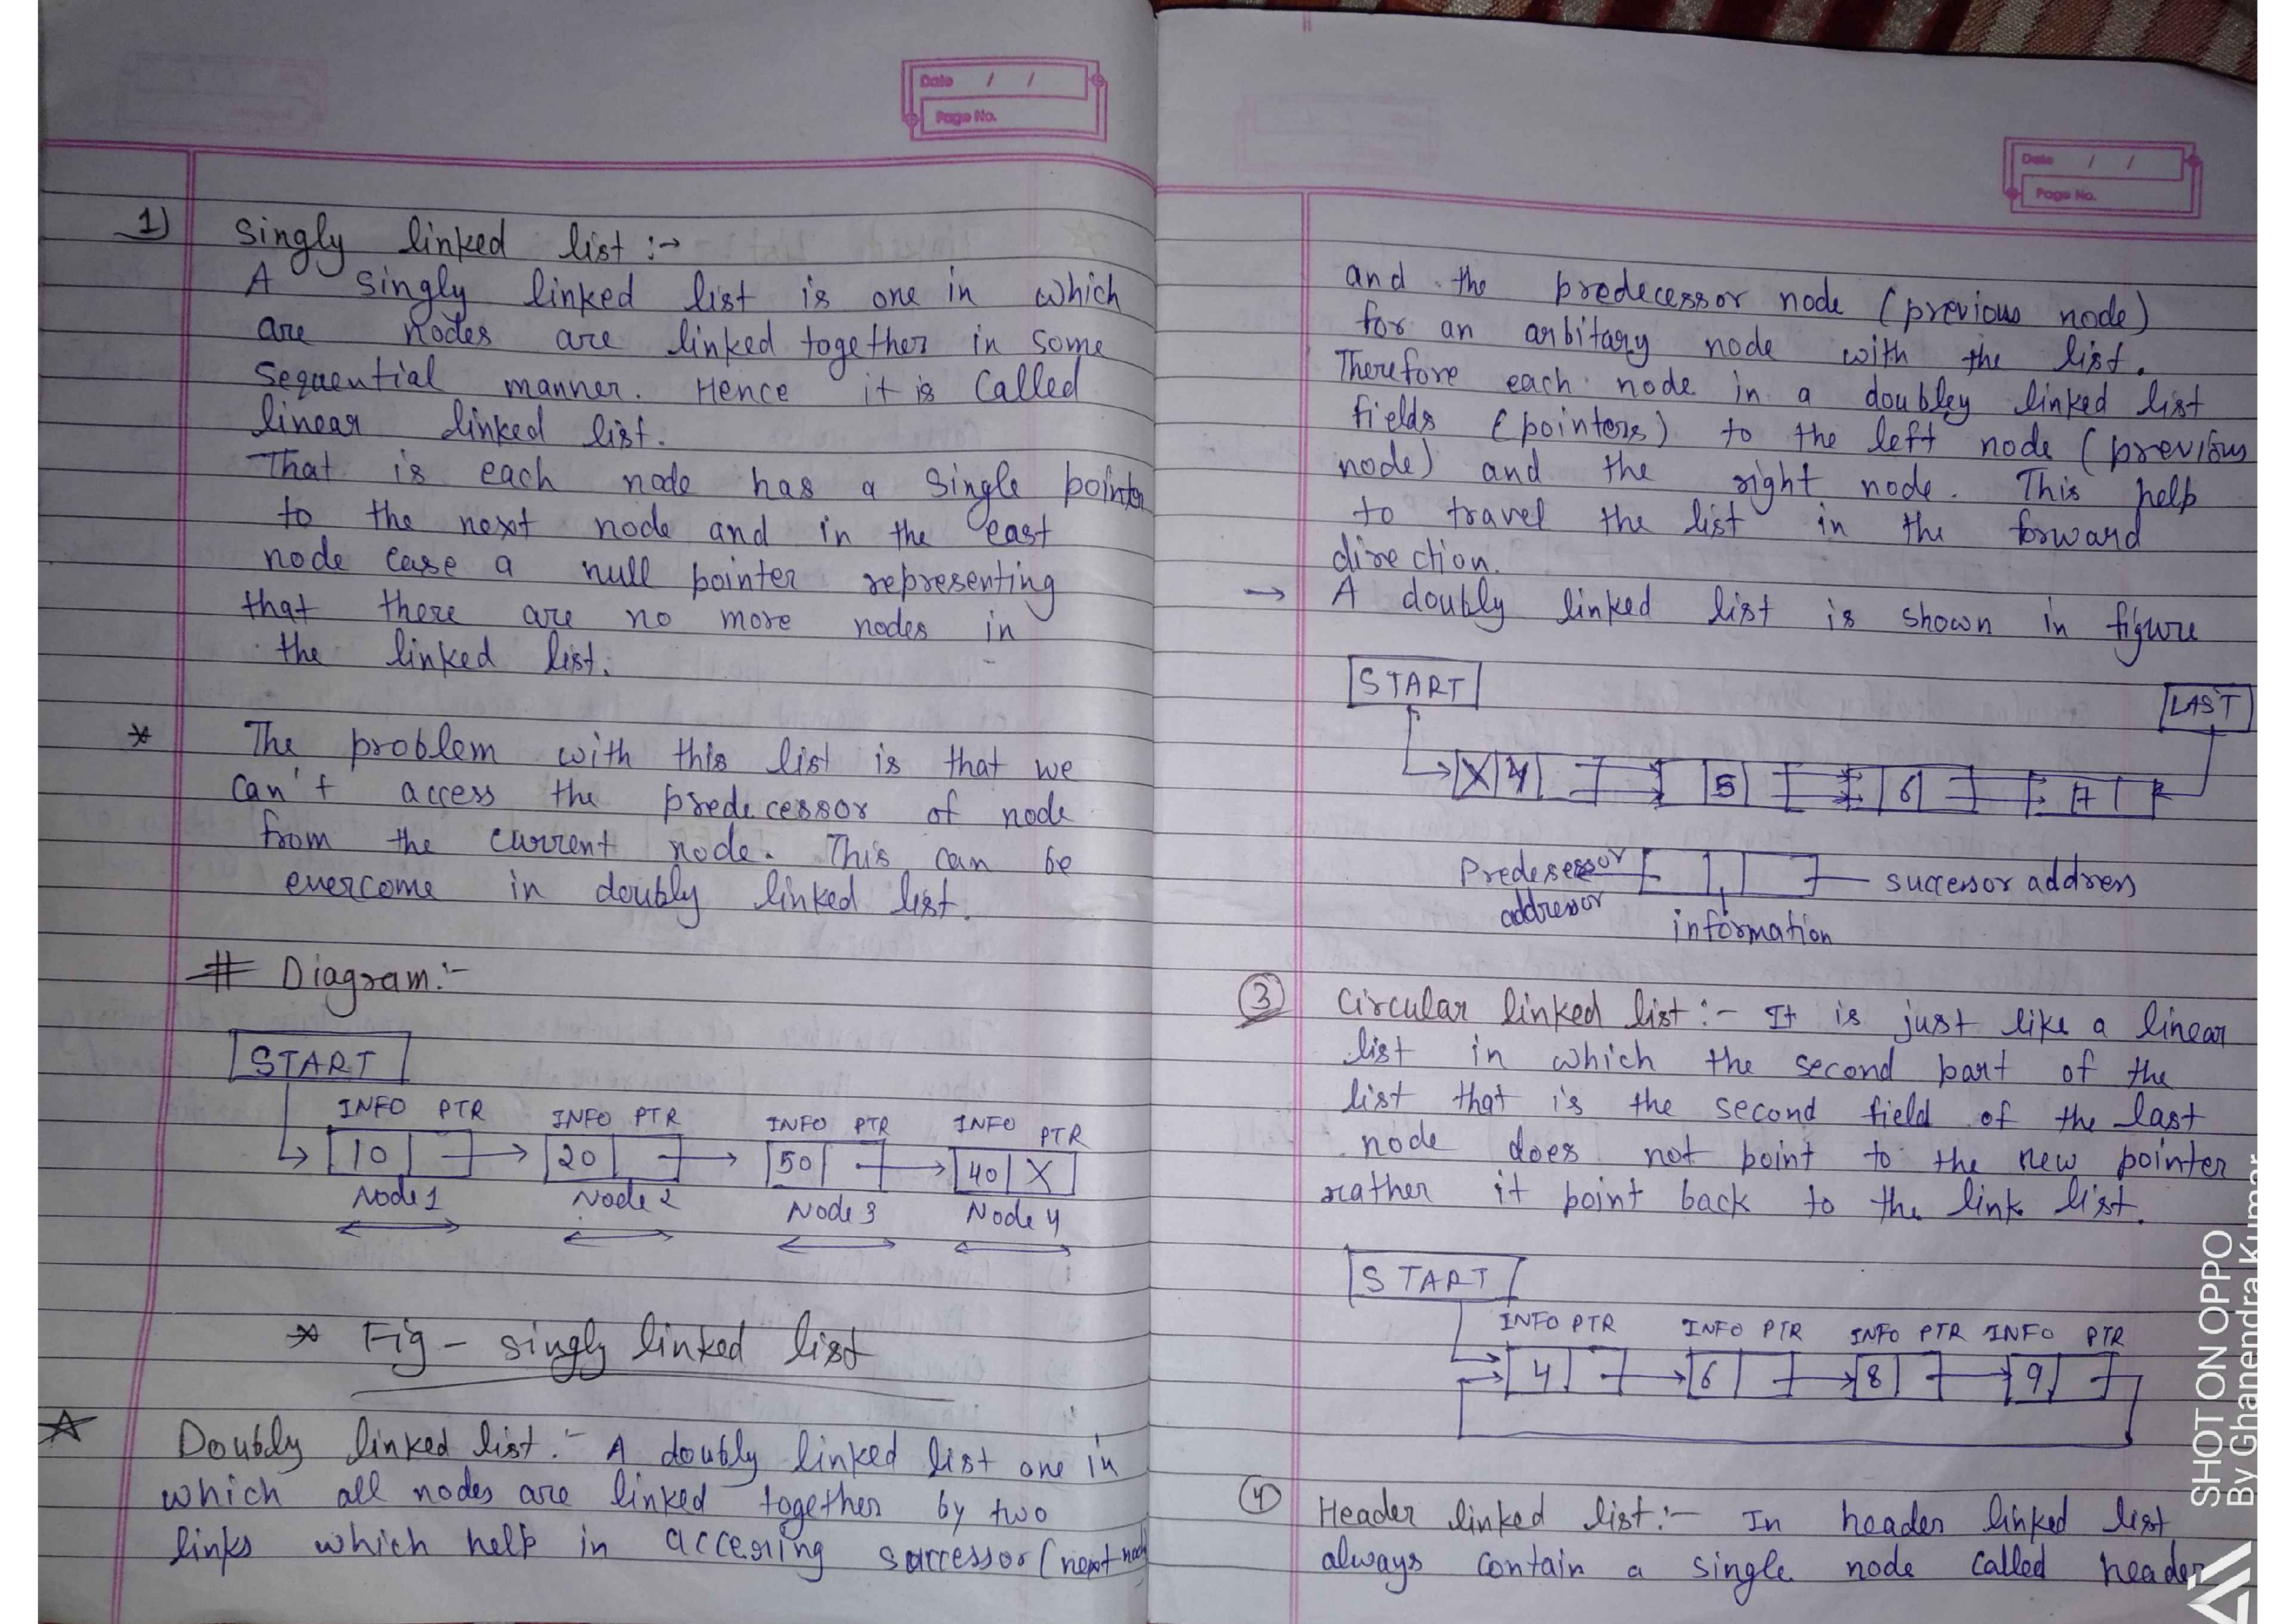 Date / /
Page No.
1) Singly linked list :→
A singly linked list is one in which
are nodes are linked together in some
Sequential manner. Hence it is Called
linear linked list.
That is each node has a single pointer
to the next node and in the east
node case a null pointer representing
that there are no more nodes in
the linked list.
* The problem with this list is that we
can't access the predecessor of node
from the current node. This can be
evercome in doubly linked list.
# Diagram:-
START
INFO PTR INFO PTR INFO PTR INFO PTR
10 20 50 40 X
Node 1 Node 2 Node 3 Node 4
* Fig - singly linked list
☆ Doubly linked list.- A doubly linked list one in
which all nodes are linked together by two
links which help in accessing successor (next node
Date / /
Page No.
and the predecessor node (previous node)
for an arbitary node with the list.
Therefore each node in a doubley linked list
fields (pointers) to the left node (previous
node) and the right node. This help
to travel the list in the forward
direction.
→ A doubly linked list is shown in figure
START
LAST
X 4 5 6 7
Predesessor
addressor
successor address
information
③ Circular linked list :- It is just like a linear
list in which the second part of the
list that is the second field of the last
node does not point to the new pointer
rather it point back to the link list.
START
INFO PTR INFO PTR INFO PTR INFO PTR
4 6 8 9
④ Header linked list :- In header linked list
always contain a single node called header
SHOT ON OPPO
By Ghanendra Kumar